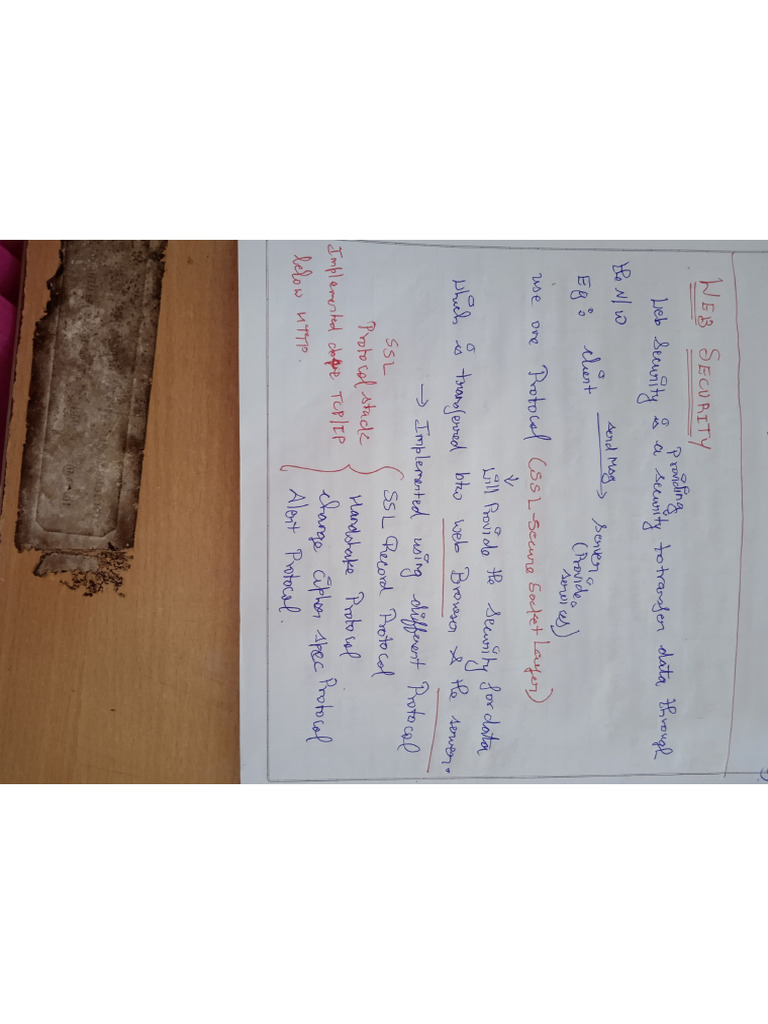 WEB SECURITY
Providing
Web security is a security to transfer data through
the N/W
Eg: client send msg → server
(Provide services)
use one Protocol (SSL-Secure Socket Layer)
↓
will Provide the security for data
which is transferred btw Web Browser & the server.
→ Implemented using different Protocol
SSL
Protocol stack
Implemented above TCP/IP
below HTTP.
SSL Record Protocol
Handshake Protocol
change cipher spec Protocol
Alert Protocol.